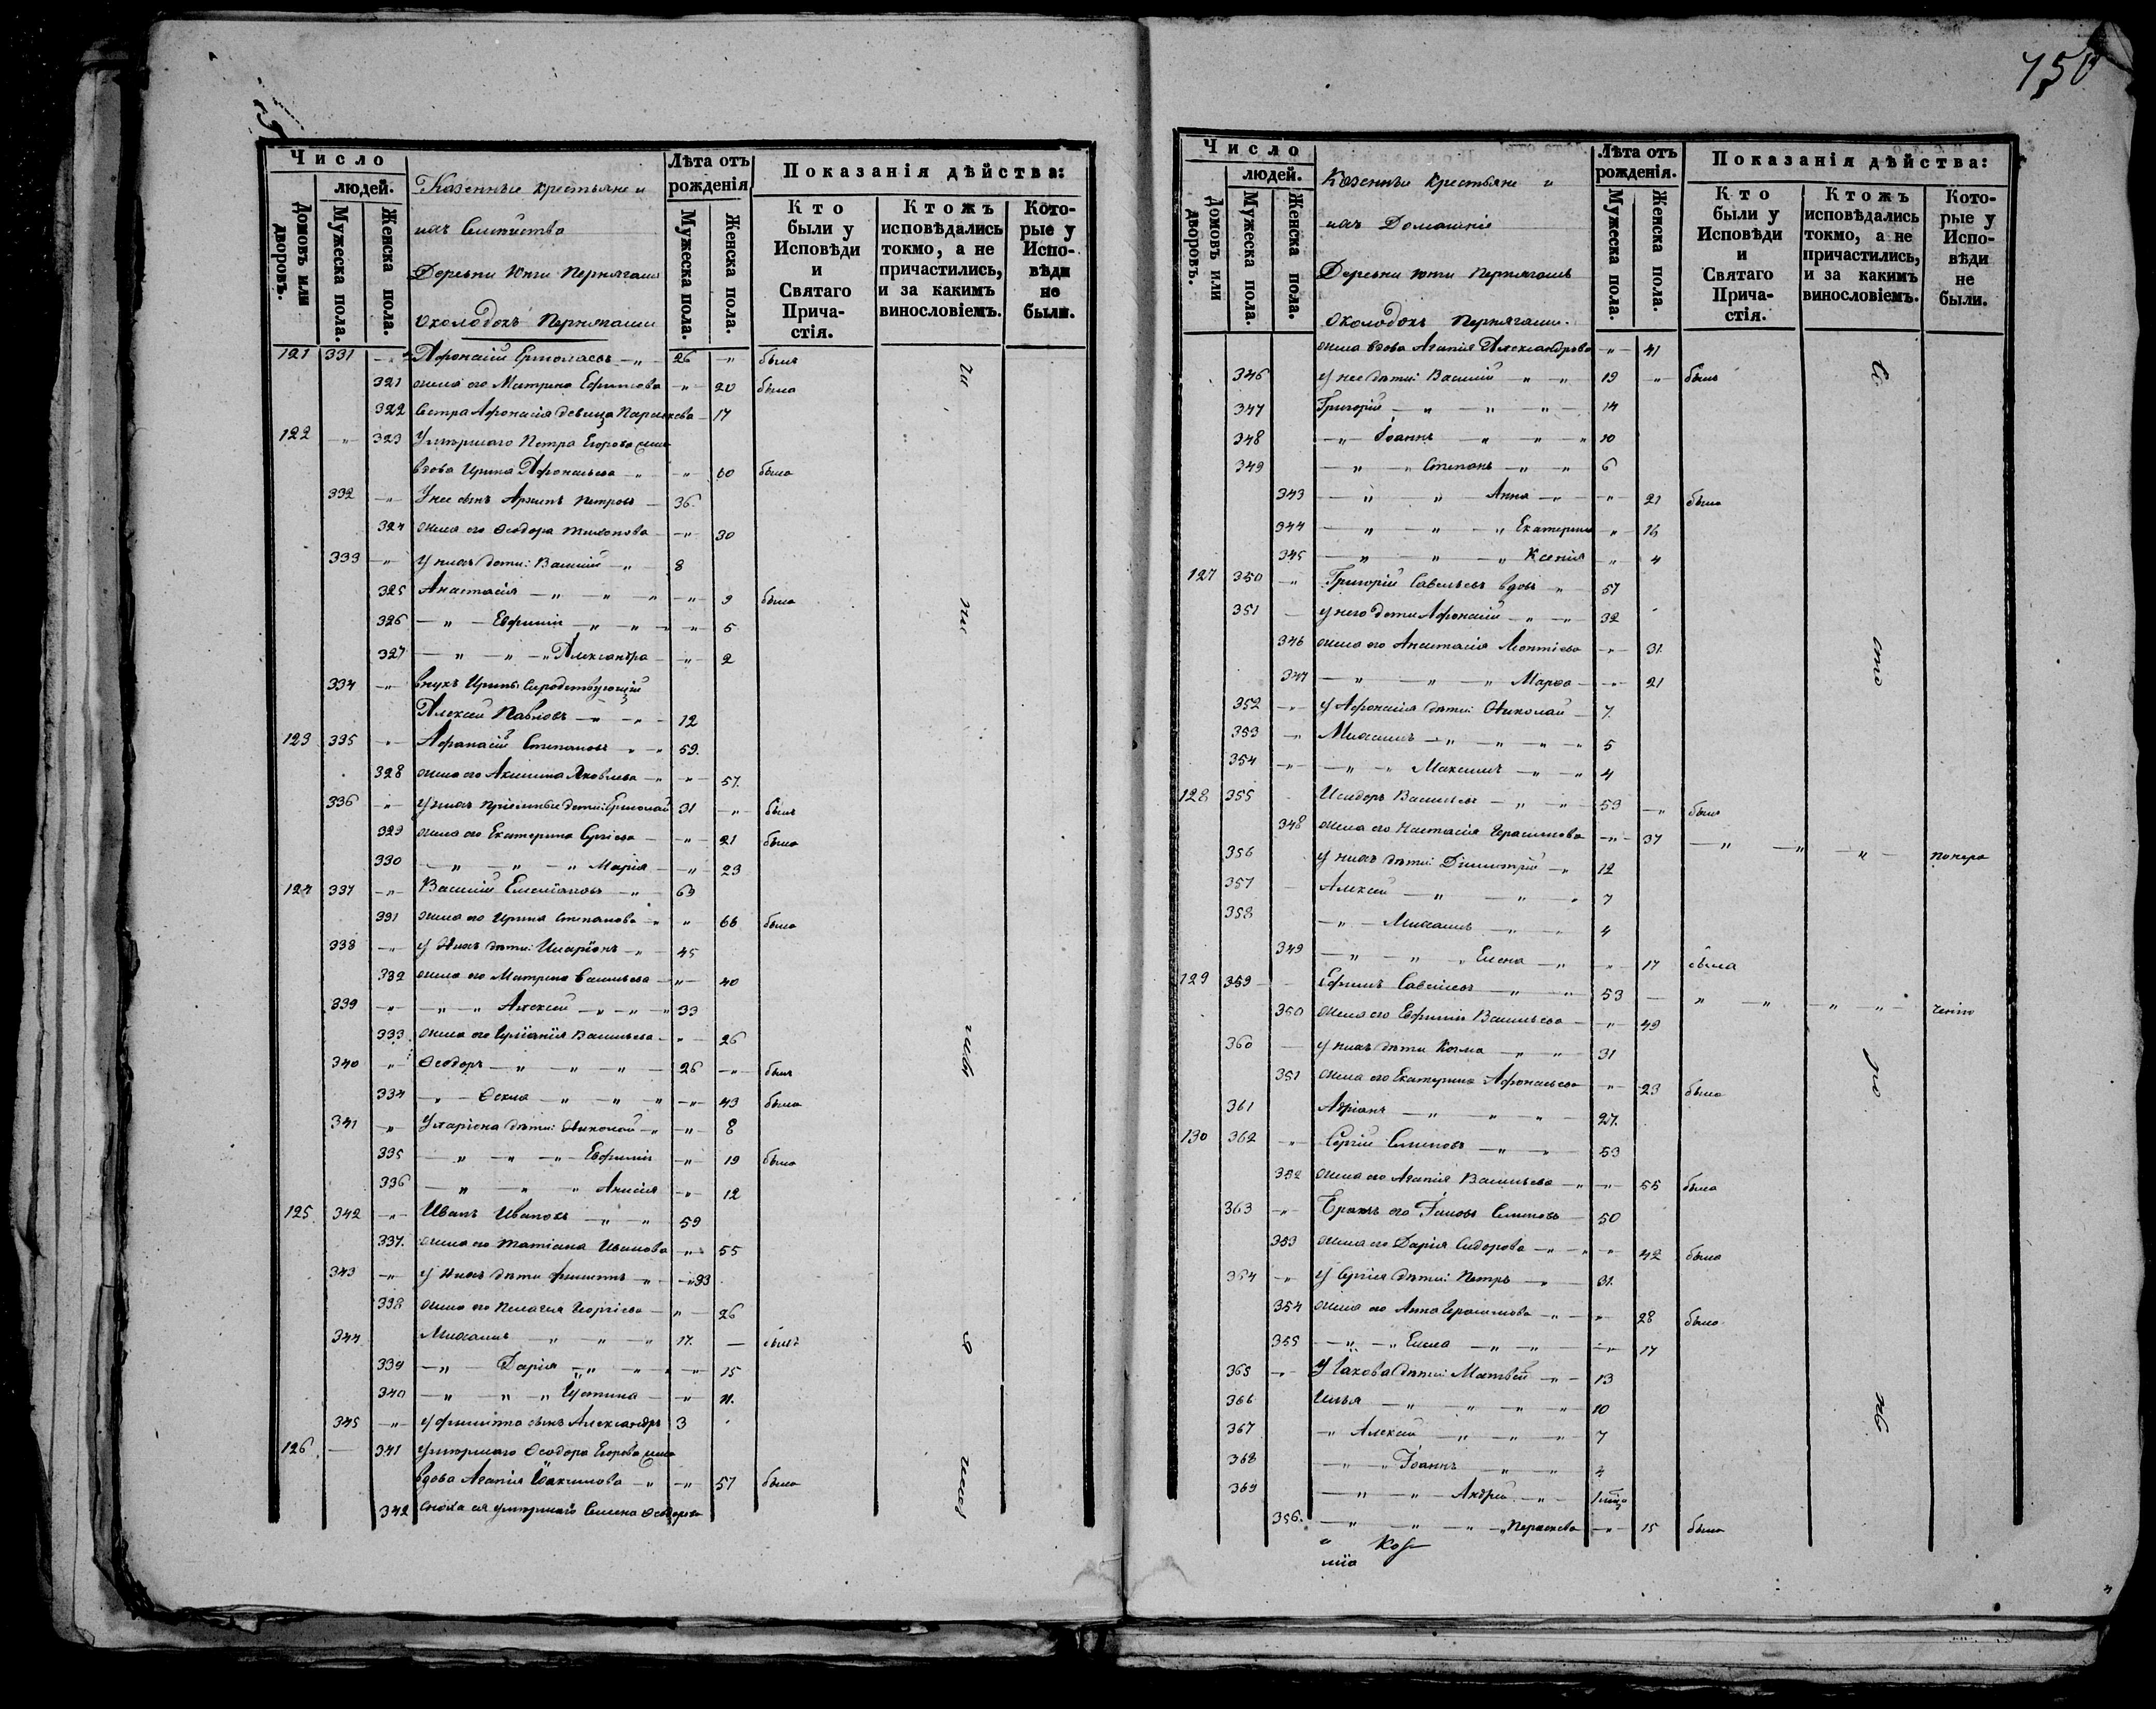 150
Число
людей.
Домовъ или дворовъ.
Мужеска пола.
Женска пола.
Казенные крестьяне и
ихъ Семейства
Деревни Юнги
околодокъ
Лѣта отъ рожденія
Мужеска пола.
Женска пола.
Показанія дѣйства:
Кто были у Исповѣди и Святаго Причастія.
Ктожъ исповѣдались токмо, а не причастились, и за какимъ винословіемъ.
Которые у Исповѣди не были.
121 331 Афонасій Ермолаевъ 26 былъ
321 жена его Матрена Ефимова 20 была
322 Сестра Афонасія девица Параскева 17
122 323 Умершаго Петра Егорова жена
вдова Ирина Афонасьева 60 была
332 У нее сынъ Архипъ Петровъ 36
324 жена его Ѳеодора Тихонова 30
333 У нихъ дети: Василій 8
325 Анастасія 9 была
326 Евфимія 5
327 Александра 2
334 внукъ Ирины
Алексей Павловъ 12
123 335 Афанасій Степановъ 59.
328 жена его Акилина Яковлева 57.
336 У нихъ приемные дети: Ермолай 31 былъ
329 жена его Екатерина Сергіева 21 была
330 Марія 23
124 337 Василій Емеліановъ 69
331 жена его Ирина Степанова 66 была
338 У нихъ дети: Иларіонъ 45
332 жена его Матрена Васильева 40
339 Алексей 33
333 жена его Васильева 26
340 Ѳеодоръ 26 былъ
334 Ѳекла 43 была
341 У Ларіона дети: Николай 8
335 Евфимія 19 была
336 Анисія 12
125 342 Иванъ Ивановъ 59
337. жена его Татіана Иванова 55
343 У нихъ дети Филиппъ 33
338 жена его Пелагея Георгіева 26
344 Михаилъ 17. былъ
339 Дарія 15
340 Устина 11.
345 У Филиппа сынъ Александръ 3
126 341 Умершаго Ѳеодора Егорова жена
вдова Агапія Іоакимова 57 была
342 Сноха ея умершаго Семена Ѳеодорова
Число
людей.
Домовъ или дворовъ.
Мужеска пола.
Женска пола.
Казенные крестьяне и
ихъ Домашніе
Деревни Юнги
околодокъ
Лѣта отъ рожденія.
Мужеска пола.
Женска пола.
Показанія дѣйства:
Кто были у Исповѣди и Святаго Причастія.
Ктожъ исповѣдались токмо, а не причастились, и за какимъ винословіемъ.
Которые у Исповѣди не были.
жена вдова Агапія Александрова 41
346 У нее дети: Василій 19 былъ
347 Григорій 14
348 Іоаннъ 10
349 Степанъ 6
343 Анна 21 была
344 Екатерина 16
345 Ксенія 4
127 350 Григорій Савельевъ вдовъ 57
351 У него дети Афонасій 32
346 жена его Анастасія Леонтіева 31.
347 Марѳа 21
352 У Афонасія дети: Николай 7.
353 Михаилъ 5
354 Максимъ 4
128 355 Исидоръ Васильевъ 59 былъ
348 жена его Настасія Герасимова 37
356 У нихъ дети: Димитрій 12
357 Алексей 7
358 Михаилъ 4
349 Елена 17 была
129 359 Ефимъ Савельевъ 53
350 жена его Евфимія Васильева 49
360 У нихъ дети Козма 31
351 жена его Екатерина Афонасьева 23 была
361 Адріанъ 27.
130 362 Сергій Семеновъ 53
352 жена его Агапія Васильева 55 была
363 Братъ его Іаковъ Семеновъ 50
353 жена его Дарія Сидорова 42 была
364 У Сергія дети: Петръ 31.
354 жена его Анна Герасимова 28 была
355 Елена 17
365 У Іакова дети: Матвей 13
366 Илья 10
367 Алексей 7
368 Іоаннъ 4
369 Андрей
356. Параскева 15 была